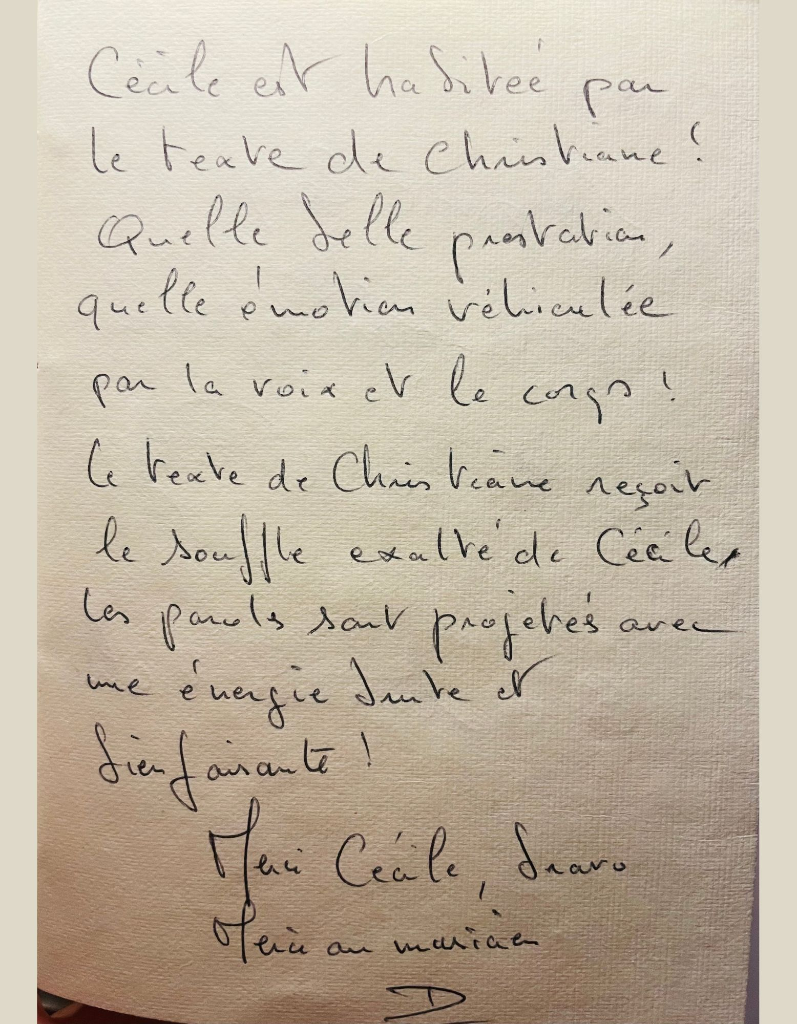 Cécile est habitée par
le texte de Christiane !
Quelle belle prestation,
quelle émotion véhiculée
par la voix et le corps !
Le texte de Christiane reçoit
le souffle exalté de Cécile,
les paroles sont projetés avec
une énergie brute et
bienfaisante !
Merci Cécile, bravo
Merci au musicien
D